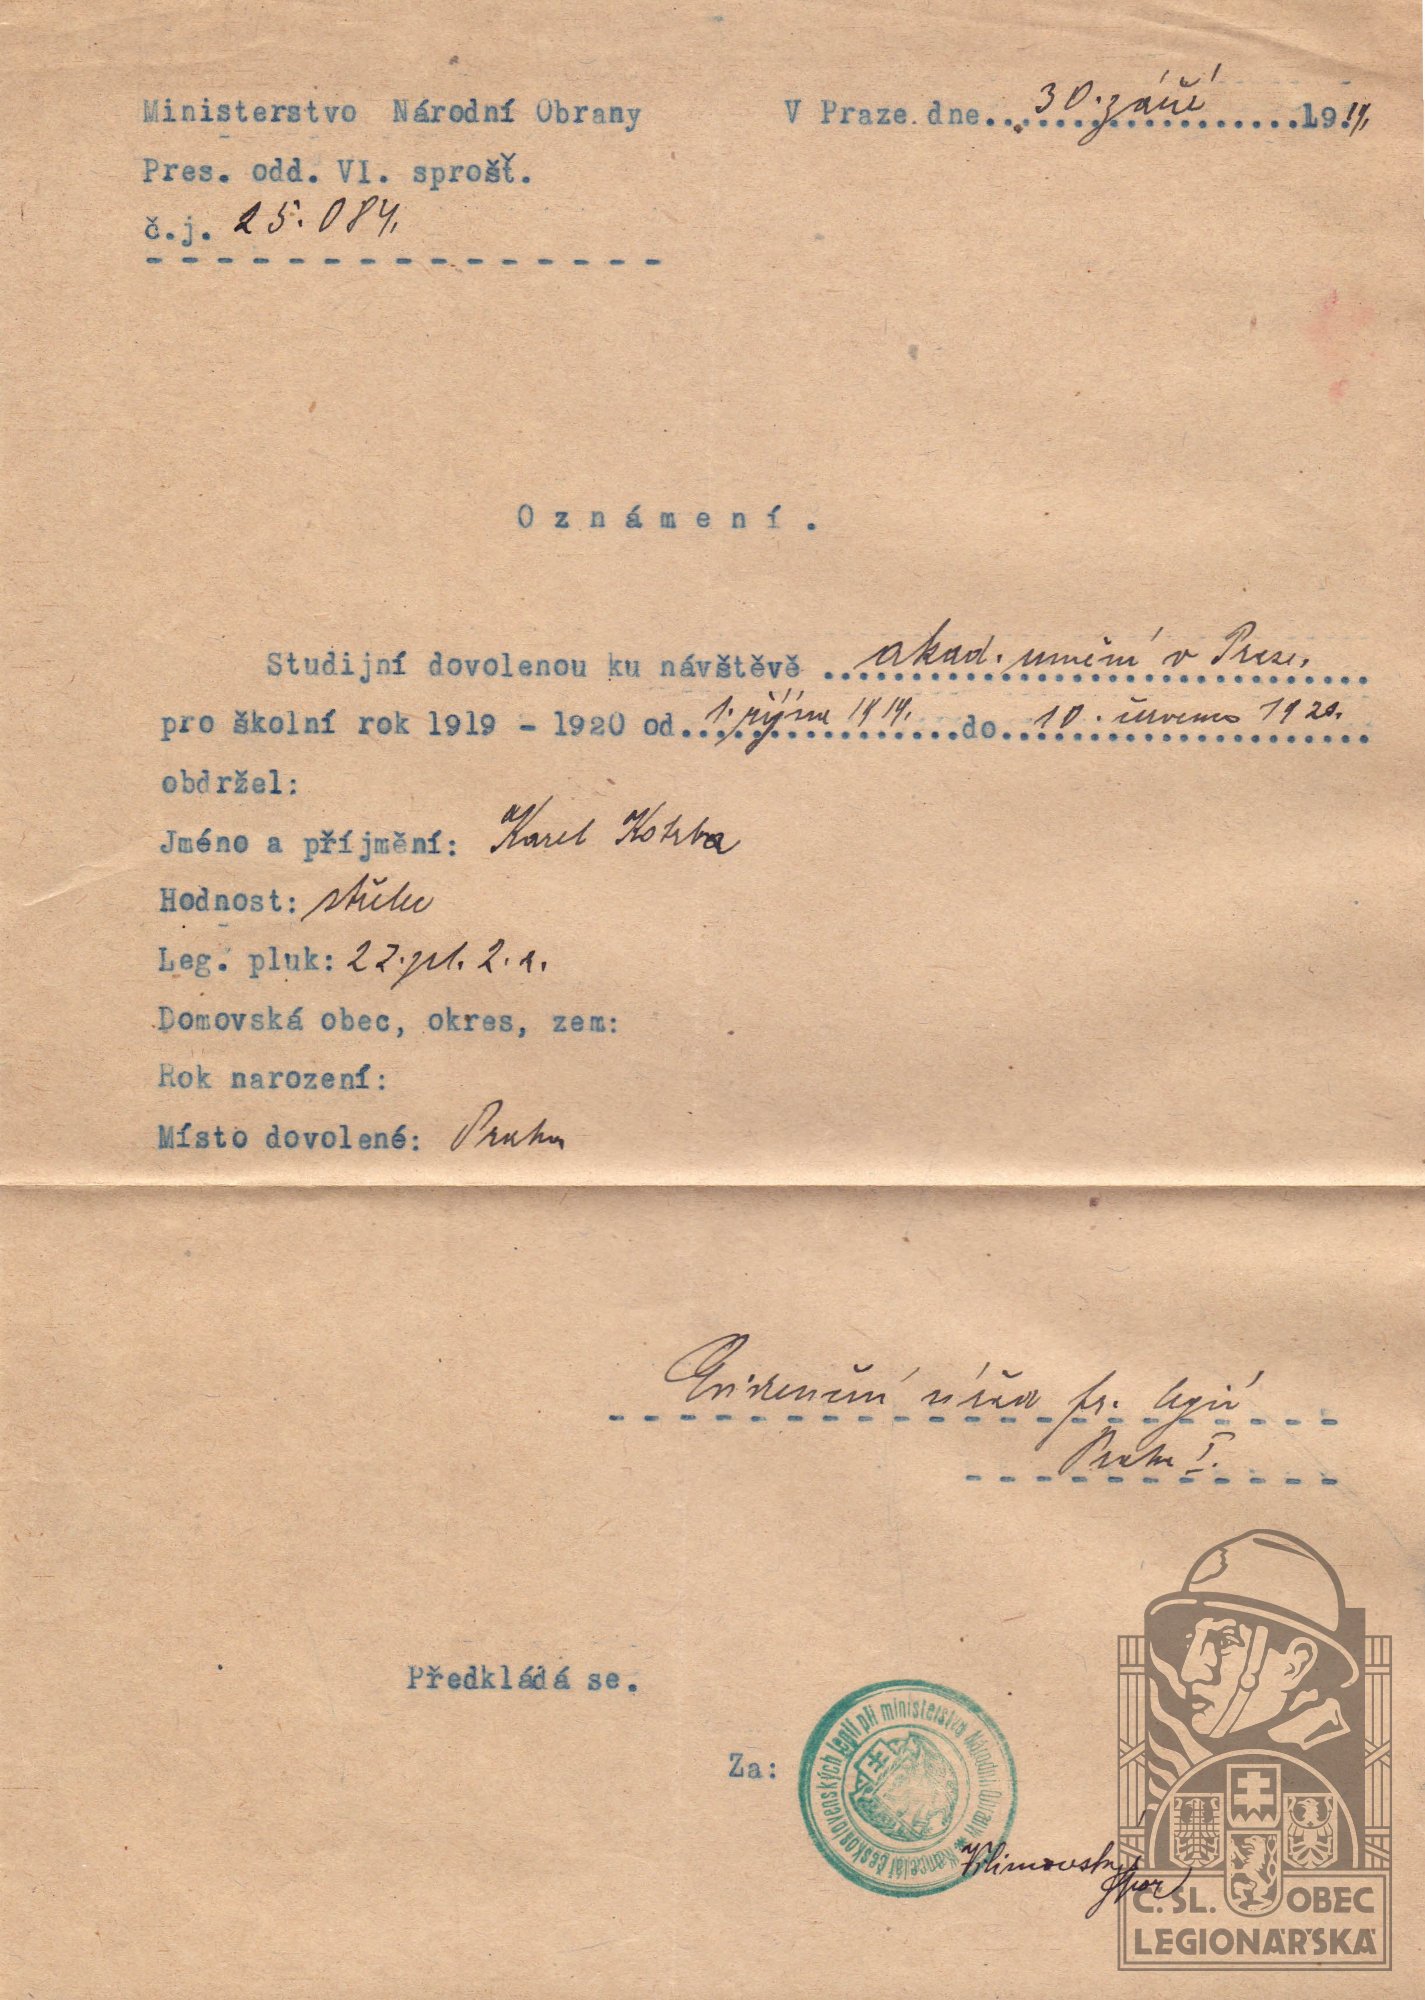 Ministerstvo Národní Obrany
V Praze dne 30. září 1919.
Pres. odd. VI. sprošť.
č.j. 25.084.
Oznámení.
Studijní dovolenou ku návštěvě akad. umění v Praze.
pro školní rok 1919 - 1920 od 1. října 1919. do 10. července 1920.
obdržel:
Jméno a příjmění: Karel Kotrba
Hodnost: střelec
Leg. pluk: 22. pl. 2. r.
Domovská obec, okres, zem:
Rok narození:
Místo dovolené: Praha
Evidenční fr. legií
Praha I.
Předkládá se.
Za:
Kancelář československých legií při ministerstvu Národní Obrany
Klimovský
Č. SL. OBEC
LEGIONÁŘSKÁ